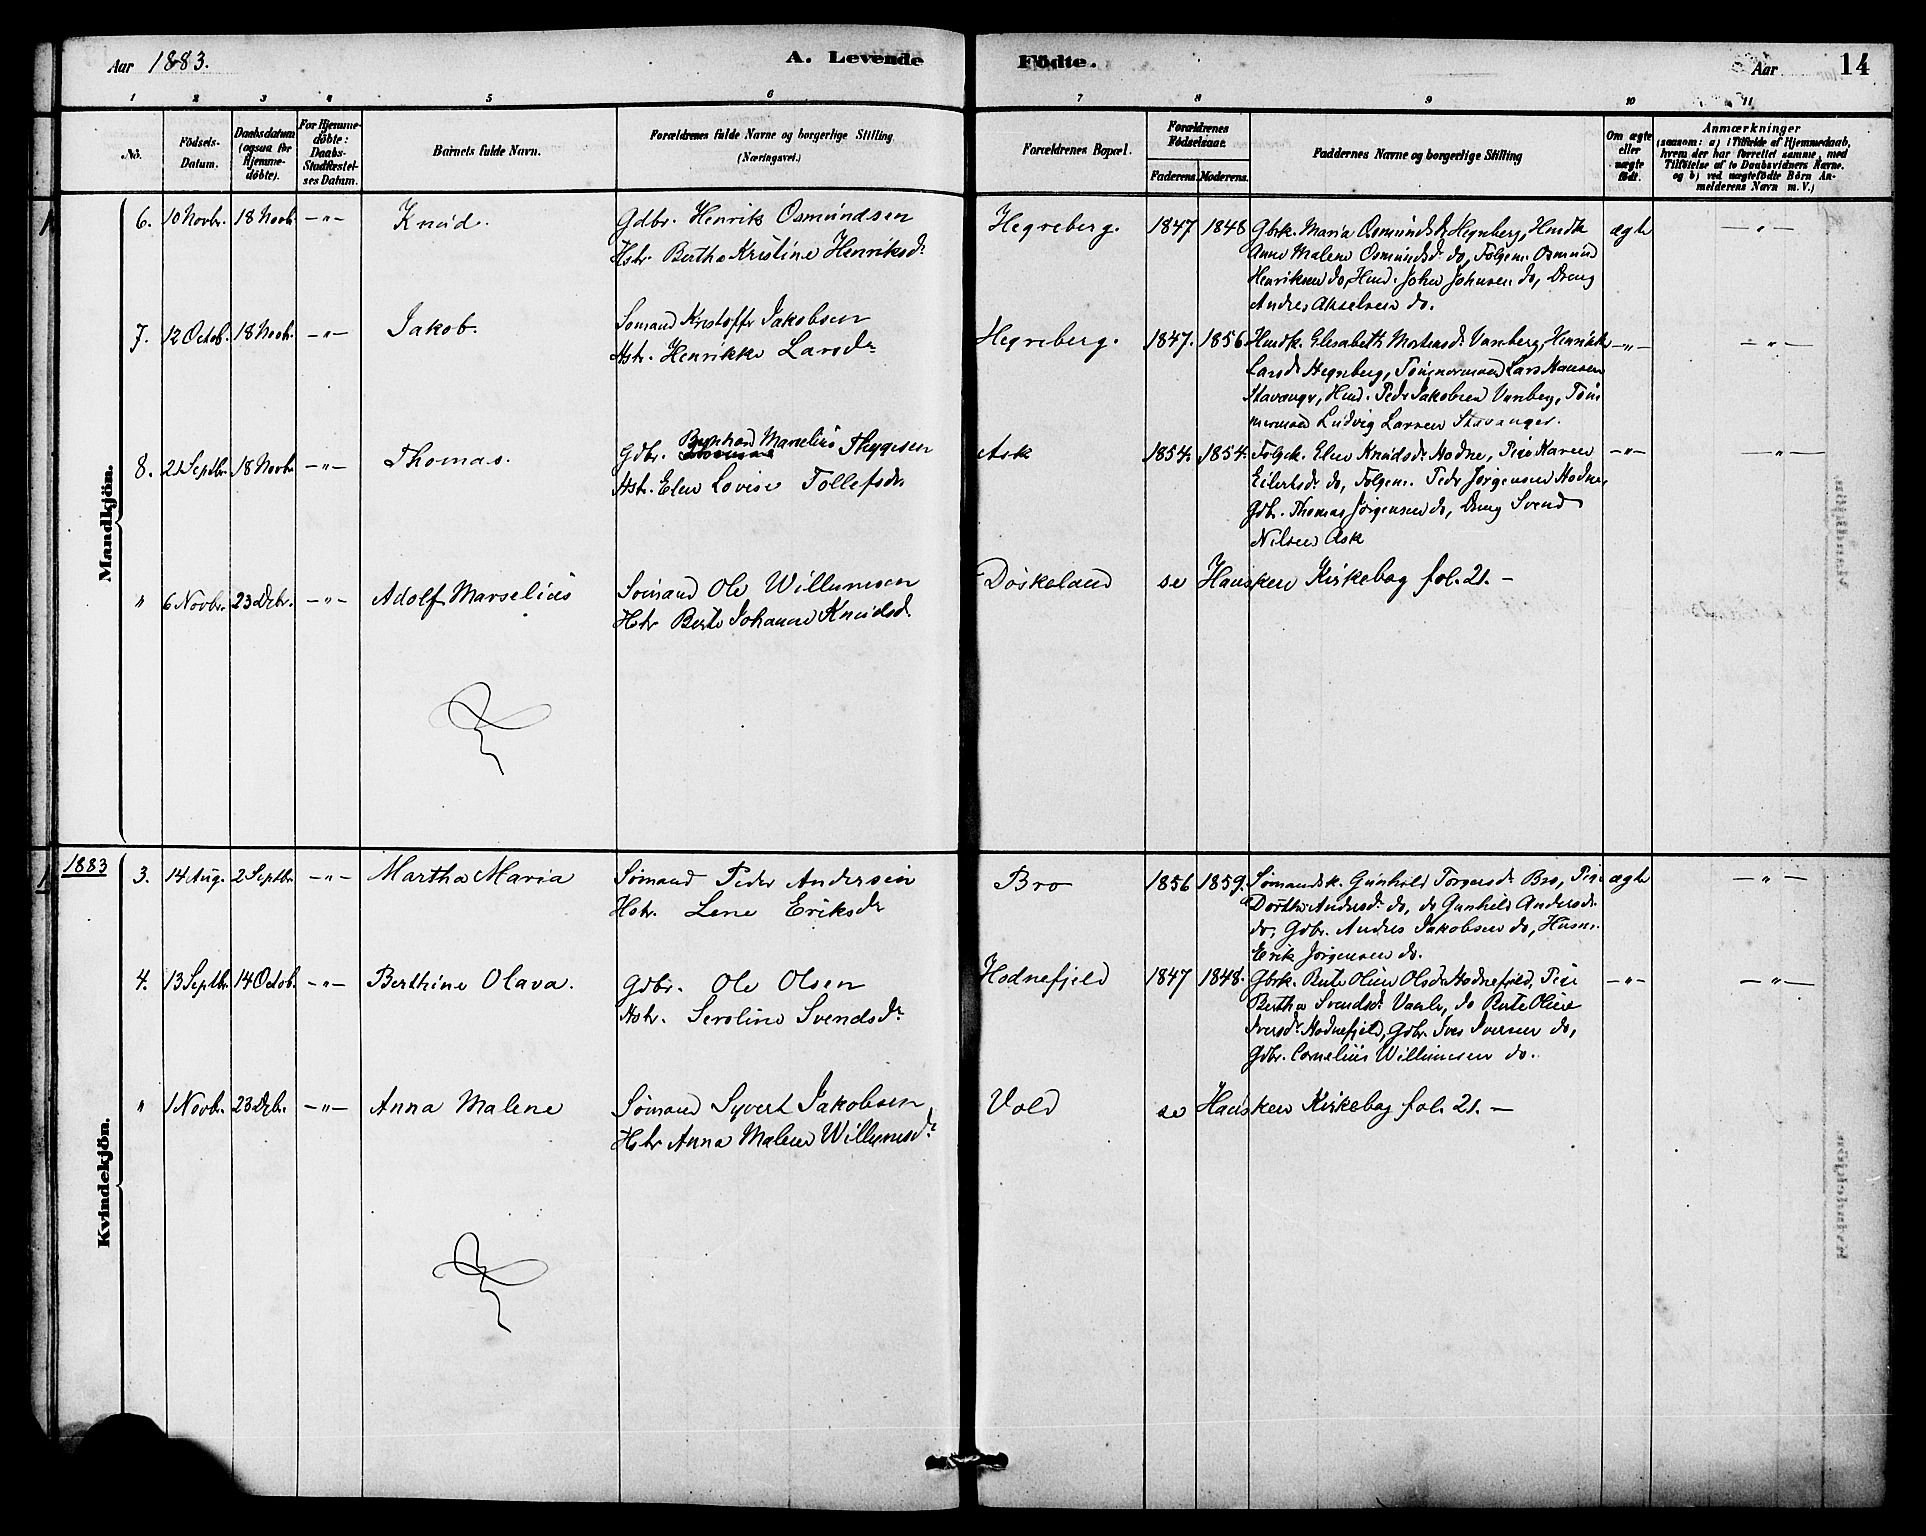 Aar 1883.
A. Levende Födte.
Aar 14
1 2 3 4 5 6 7 8 9 10 11
No.
Födsels-Datum.
Daabsdatum (ogsaa for Hjemme-döbte).
For Hjemme-döbte: Daabs-Stadfæstel-ses Datum.
Barnets fulde Navn.
Forældrenes fulde Navne og borgerlige Stilling (Næringsvei.)
Forældrenes Bopæl.
Forældrenes Födselsaar.
Faderens. Moderens.
Faddernes Navne og borgerlige Stilling
Om ægte eller uægte födt.
Anmærkninger
(saasom: a) i Tilfælde af Hjemmedaab, hvem der har forrettet samme, med Tilföielse af to Daabsvidners Navne. og b) ved uægtefödte Börn An-melderens Navn m. V.)
Mandkjön.
6. 10 Novbr. 18 Novb. —"— Knud. Gdbr. Henrik Osmundsen
Hstr. Bertha Kristine Henriksdr.
Hegreberg. 1847 1848
Gbrk. Maria Osmundsdr. Hegreberg, Husdk
Anne Malene Osmundsdr. do, Folgem. Osmund
Henriksen do, Husd. John Johnsen do, Dreng
Andres Akselsen do.
ægte —"—
7. 12 Octob. 18 Novb. —"— Jakob. Sömand Kristoffer Jakobsen
Hstr. Henrikke Larsdr
Hegreberg. 1847. 1856.
Husdk. Elisabeth Mortensdr. Vanberg, Henrikke
Larsdr. Hegreberg, Tömmermand Lars Hansen
Stavanger, Husd. Peder Jakobsen Vanberg, Töm
mermand Ludvig Larsen Stavanger.
—"— —"—
8. 21 Septbr. 18 Novbr —"— Thomas. Gdbr. Bernhard Marselius Thygesen
Hstr. Elen Lovise Tollefsdr.
Ask 1854. 1854.
Folgek. Elen Knudsdr. Hodne, Pige Karen
Eilertsdr. do, Folgem. Peder Jørgensen Hodne,
Gdbr. Thomas Jørgensen do, Dreng Svend
Nilsen Ask
—"— —"—
" 6 Novbr. 23 Dcbr. —"— Adolf Marselius Sömand Ole Willumsen
Hstr Berte Johanne Knudsdr.
Döskeland se Hausken Kirkebog fol. 21. —
Kvindekjön.
1883
3. 14 Aug. 2 Septbr —"— Martha Maria Sömand Peder Andersen
Hstr. Lene Eriksdr
Bro 1856 1859.
Sömandsk. Gunhild Torgersdr. Bro, Pige
Dorthe Andersdr. do, do Gunhild Andersdr.
do, Gdbr. Andres Jakobsen do, Husm.
Erik Jørgensen do.
ægte —"—
4. 13 Septbr. 14 Octob. —"— Berthine Olava. Gdbr. Ole Olsen
Hstr. Seroline Svendsdr.
Hodnefjeld 1847 1848.
Gbrk. Berte Oline Olsdr. Hodnefjeld, Pige
Bertha Svendsdr. do Berte Oline
Iversdr. Hodnefjeld, Gdbr. Iver Iversen do,
Gdbr. Cornelius Willumsen do.
—"— —"—
" 1 Novbr. 23 Dcbr. —"— Anna Malene Sömand Syvert Jakobsen
Hstr Anna Malene Willumsdr.
Vold se Hausken Kirkebog fol. 21. —